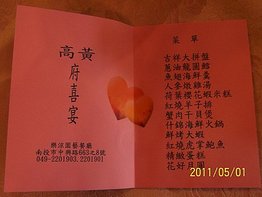 高黃
府喜宴
樂活園藝餐廳
南投市中興路663之8號
049-2201903.2201901
菜單
吉祥大拼盤
蔥油龍圓鱈
魚翅海鮮羹
人蔘燉雞湯
荷葉櫻花蝦米糕
紅燒羊子排
蟹肉干貝煲
什錦海鮮火鍋
鮮烤大蝦
紅燒虎掌鮑魚
精緻蛋糕
花好月圓
2011/05/01